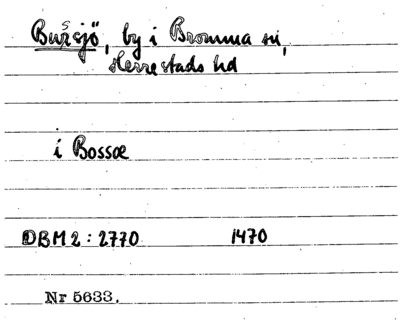 Bursjö, by i Bromma sn,
Herrestads hd
i Bossœ
DBM 2: 2770 1470
Nr 5633.